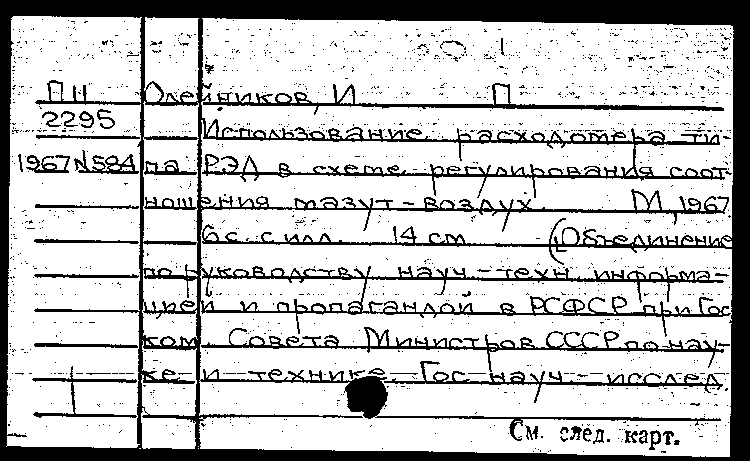 ПН Олейников, И П
2295 Использование расходомера ти-
1967N584 па РЭД в схеме регулирования соот
ношения мазут-воздух. М, 1967
6 с. с илл. 14 см (Объединение
по руководству науч.-техн. информа-
цией и пропагандой в РСФСР при Гос
ком. Совета Министров СССР по нау-
ке и технике. Гос науч.-исслед.
См. след. карт.